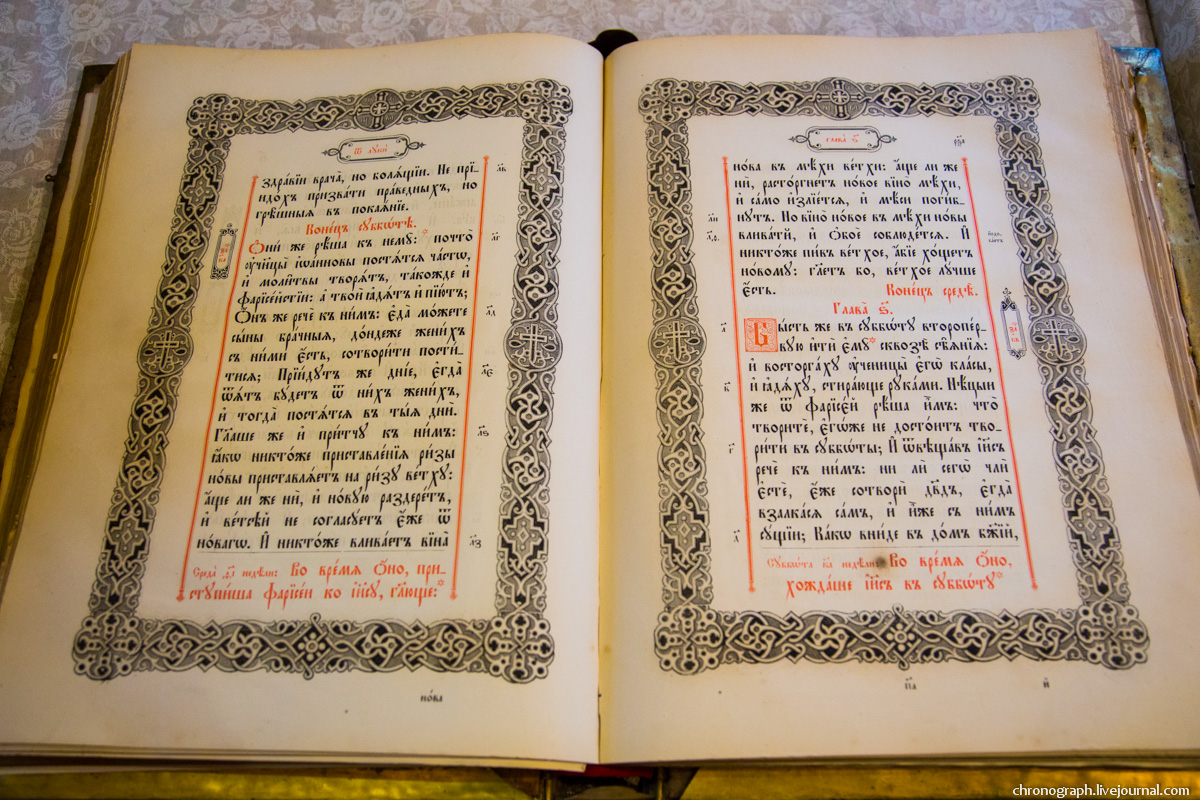 Ѿ лꙋкѝ
здра́вїи врача̀, но болѧ́щїи. Не прї-
идо́хъ призва́ти пра́ведныхъ, но
грѣ́шныѧ въ покаѧ́нїе.
Коне́цъ сꙋббѡ́тѣ.
Ѻ҆ни́ же рѣ́ша къ немꙋ̀: почто̀
ᲂу҆чн҃цы̀ і҆ѡа́ннѡвы постѧ́тсѧ ча́стѡ,
и҆ моли́твы творѧ́тъ, та́кожде и҆
фарїсе́йстїи: а҆ твоѝ ꙗ҆дѧ́тъ и҆ пїю́тъ;
Ѻ҆́нъ же речѐ къ ни̑мъ: є҆да̀ мо́жете
сы́ны бра́чныѧ, до́ндеже жени́хъ
съ ни́ми є҆́сть, сотвори́ти пости́-
тисѧ; Прїи́дꙋтъ же дні́е, є҆гда̀
ѿѧ́тъ бꙋ́детъ ѿ ни́хъ жени́хъ,
и҆ тогда̀ постѧ́тсѧ въ ты̑ѧ дни̑.
Гл҃аше же и҆ при́тчꙋ къ ни̑мъ:
ꙗ҆́кѡ никто́же приставле́нїѧ ри́зы
но́вы приставлѧ́етъ на ри́зꙋ ве́тхꙋ:
а҆́ще ли же ни̑, и҆ но́вꙋю раздере́тъ,
и҆ ве́тсѣй не согласꙋ́етъ є҆́же ѿ
но́вагѡ. И҆ никто́же влива́етъ вїна̀
Среда̀ дı҃ недѣ́ли: Во вре́мѧ ѻ҆́но, при-
стꙋпи́ша фарїсе́и ко і҆и҃сꙋ, гл҃юще:
но́ва
л҃в
л҃г
л҃д
л҃є
л҃ѕ
л҃з
Глава̀ ѕ҃.
но́ва въ мѣ́хи ве́тхи: а҆́ще ли же
ни̑, расто́ргнетъ но́вое вїно̀ мѣ́хи,
и҆ са́мо и҆злїе́тсѧ, и҆ мѣ́си поги́б-
нꙋтъ. Но вїно̀ но́вое въ мѣ́хи но́вы
влива́ти, и҆ ѻ҆бо́е соблюде́тсѧ. И҆
никто́же пи́въ ве́тхое, а҆́бїе хо́щетъ
но́вомꙋ: гл҃етъ бо, ве́тхое лꙋ́чше
є҆́сть. Коне́цъ средѣ̀.
Глава̀ ѕ҃.
Бы́сть же въ сꙋббѡ́тꙋ второпе́р-
вꙋю и҆тѝ є҆мꙋ̀ сквозѣ̀ сѣ̑ѧнїѧ:
и҆ восторга́хꙋ ᲂу҆ченицы̀ є҆гѡ̀ кла́сы,
и҆ ꙗ҆дѧ́хꙋ, стира́юще рꙋка́ми. Нѣ́цыи
же ѿ фарїсе́й рѣ́ша и҆̀мъ: что̀
творитѐ, є҆гѡ́же не досто́итъ тво-
ри́ти въ сꙋббѡ́ты; И҆ ѿвѣща́въ і҆и҃съ
речѐ къ ни̑мъ: ни ли̑ сегѡ̀ члѝ
є҆стѐ, є҆́же сотворѝ дв҃дъ, є҆гда̀
взалка́сѧ са́мъ, и҆ и҆̀же съ ни́мъ
сꙋ́щїи; Ка́кѡ вни́де въ до́мъ бж҃їй,
Сꙋббѡ́та к҃а недѣ́ли: Во вре́мѧ ѻ҆́но,
хожда́ше і҆и҃съ въ сꙋббѡ́тꙋ
л҃и
л҃ѳ
а҃
в҃
г҃
д҃
и҆
chronograph.livejournal.com